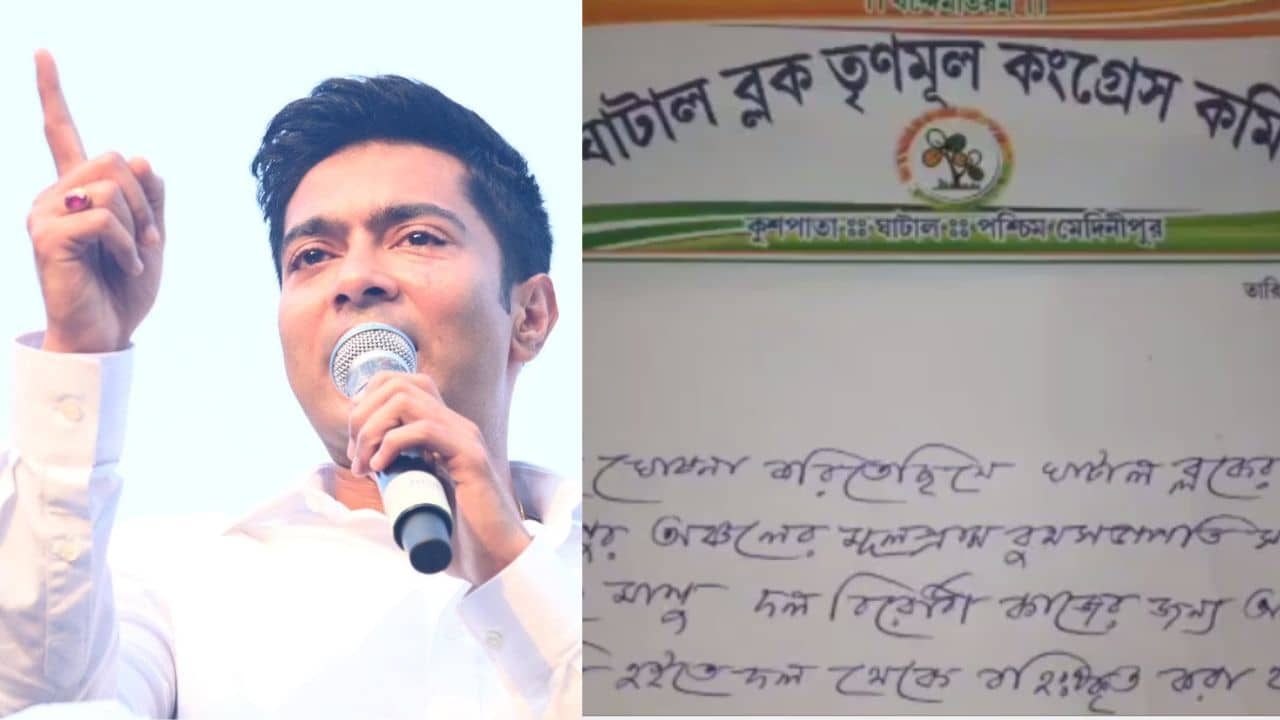 ।। বন্দেমাতরম ।।
ঘাটাল ব্লক তৃণমূল কংগ্রেস কমি
কুশপাতা ঃঃ ঘাটাল ঃঃ পশ্চিম মেদিনীপুর
তারি
ঘোষনা করিতেছি যে ঘাটাল ব্লকের
পুর অঞ্চলের বুথসভাপতি স
দল বিরোধী কাজের জন্য অ
হইতে দল থেকে বহিঃষ্কৃত করা হ